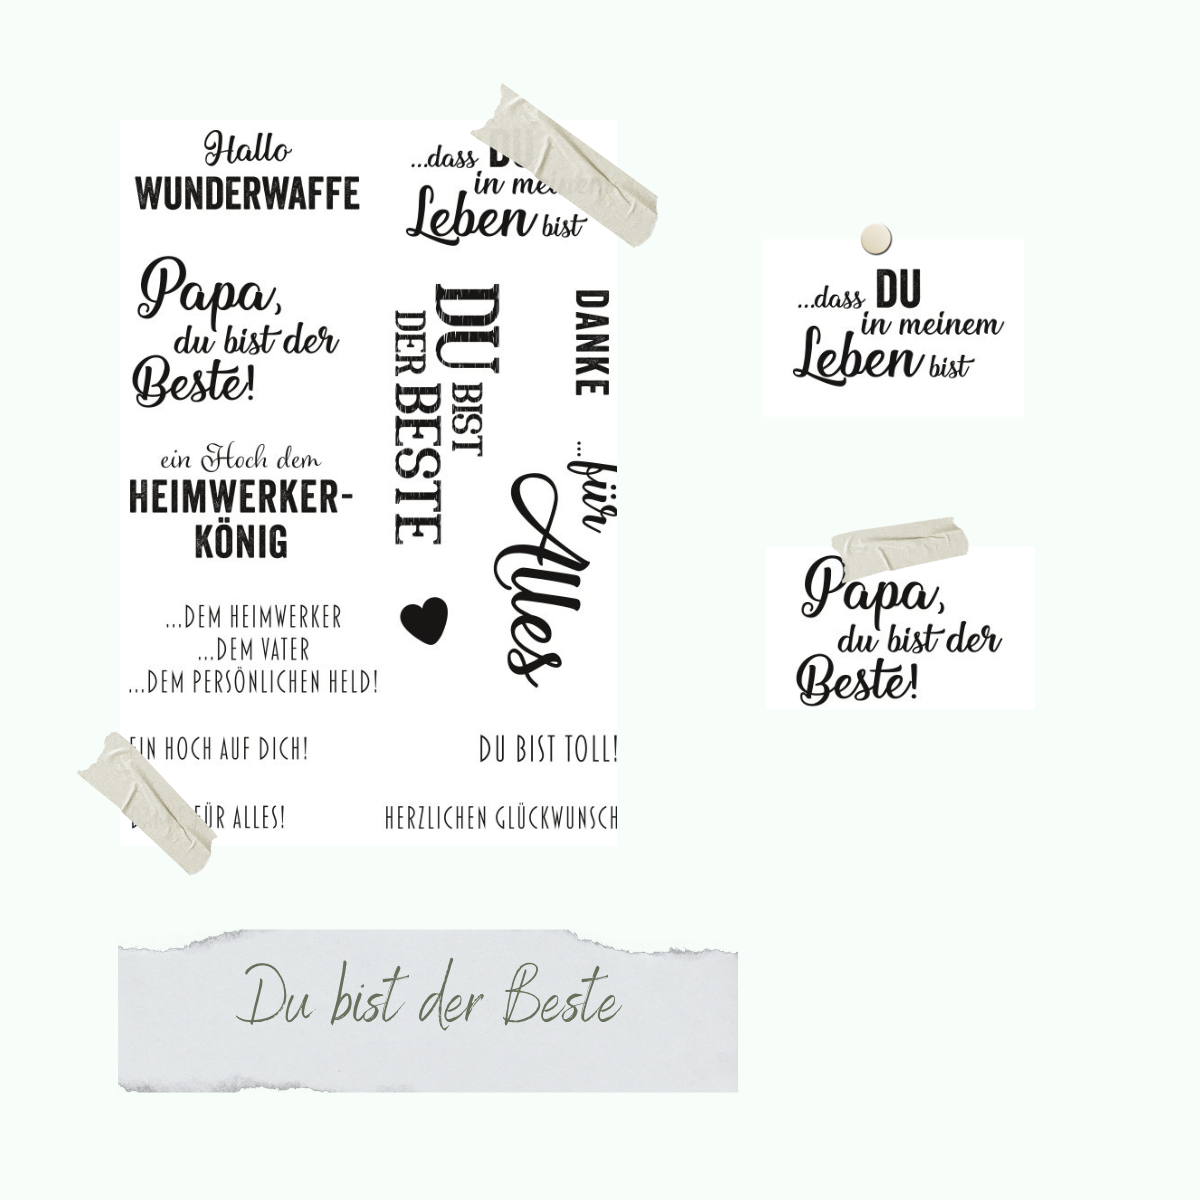 Hallo
WUNDERWAFFE
...dass DU
in meinem
Leben bist
Papa,
du bist der
Beste!
DU BIST
DER BESTE
DANKE
...für
Alles
ein Hoch dem
HEIMWERKER-
KÖNIG
...DEM HEIMWERKER
...DEM VATER
...DEM PERSÖNLICHEN HELD!
EIN HOCH AUF DICH!
DU BIST TOLL!
FÜR ALLES!
HERZLICHEN GLÜCKWUNSCH
...dass DU
in meinem
Leben bist
Papa,
du bist der
Beste!
Du bist der Beste